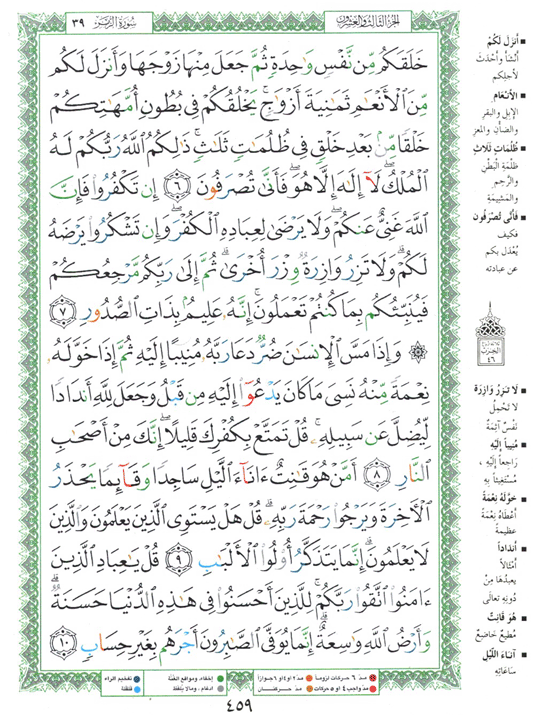 سورة الزمر ٣٩
الجزء الثالث والعشرون
خَلَقَكُم مِّن نَّفْسٍ وَٰحِدَةٍ ثُمَّ جَعَلَ مِنْهَا زَوْجَهَا وَأَنزَلَ لَكُم
مِّنَ ٱلْأَنْعَٰمِ ثَمَٰنِيَةَ أَزْوَٰجٍ ۚ يَخْلُقُكُمْ فِى بُطُونِ أُمَّهَٰتِكُمْ
خَلْقًا مِّنۢ بَعْدِ خَلْقٍ فِى ظُلُمَٰتٍ ثَلَٰثٍ ۚ ذَٰلِكُمُ ٱللَّهُ رَبُّكُمْ لَهُ
ٱلْمُلْكُ ۖ لَآ إِلَٰهَ إِلَّا هُوَ ۖ فَأَنَّىٰ تُصْرَفُونَ ٦ إِن تَكْفُرُوا۟ فَإِنَّ
ٱللَّهَ غَنِىٌّ عَنكُمْ ۖ وَلَا يَرْضَىٰ لِعِبَادِهِ ٱلْكُفْرَ ۖ وَإِن تَشْكُرُوا۟ يَرْضَهُ
لَكُمْ ۗ وَلَا تَزِرُ وَازِرَةٌ وِزْرَ أُخْرَىٰ ۗ ثُمَّ إِلَىٰ رَبِّكُم مَّرْجِعُكُمْ
فَيُنَبِّئُكُم بِمَا كُنتُمْ تَعْمَلُونَ ۚ إِنَّهُۥ عَلِيمٌۢ بِذَاتِ ٱلصُّدُورِ ٧
۞ وَإِذَا مَسَّ ٱلْإِنسَٰنَ ضُرٌّ دَعَا رَبَّهُۥ مُنِيبًا إِلَيْهِ ثُمَّ إِذَا خَوَّلَهُۥ
نِعْمَةً مِّنْهُ نَسِىَ مَا كَانَ يَدْعُوٓا۟ إِلَيْهِ مِن قَبْلُ وَجَعَلَ لِلَّهِ أَندَادًا
لِّيُضِلَّ عَن سَبِيلِهِۦ ۚ قُلْ تَمَتَّعْ بِكُفْرِكَ قَلِيلًا ۖ إِنَّكَ مِنْ أَصْحَٰبِ
ٱلنَّارِ ٨ أَمَّنْ هُوَ قَٰنِتٌ ءَانَآءَ ٱلَّيْلِ سَاجِدًا وَقَآئِمًا يَحْذَرُ
ٱلْءَاخِرَةَ وَيَرْجُوا۟ رَحْمَةَ رَبِّهِۦ ۗ قُلْ هَلْ يَسْتَوِى ٱلَّذِينَ يَعْلَمُونَ وَٱلَّذِينَ
لَا يَعْلَمُونَ ۗ إِنَّمَا يَتَذَكَّرُ أُو۟لُوا۟ ٱلْأَلْبَٰبِ ٩ قُلْ يَٰعِبَادِ ٱلَّذِينَ
ءَامَنُوا۟ ٱتَّقُوا۟ رَبَّكُمْ ۚ لِلَّذِينَ أَحْسَنُوا۟ فِى هَٰذِهِ ٱلدُّنْيَا حَسَنَةٌ ۗ
وَأَرْضُ ٱللَّهِ وَٰسِعَةٌ ۗ إِنَّمَا يُوَفَّى ٱلصَّٰبِرُونَ أَجْرَهُم بِغَيْرِ حِسَابٍ ١٠
■ أَنزَلَ لَكُمْ
أنشأ وأحدث
لأجلكم
■ الأنعام
الإبل والبقر
والضأن والمعز
■ ظُلُمَاتٍ ثَلَاثٍ
ظلمة البطن
والرحم
والمشيمة
■ فَأَنَّى تُصْرَفُونَ
فكيف
يُعْدَل بكم
عن عبادته
الحزب
٤٦
■ لَا تَزِرُ وَازِرَةٌ
لا تحمل
نفس آثمة
■ مُنِيبًا إِلَيْهِ
راجعاً إليه،
مستغيثاً به
■ خَوَّلَهُ نِعْمَةً
أعطاه نعمة
عظيمة
■ أندادًا
أمثالاً
يعبدها من
دونه تعالى
■ هُوَ قَانِتٌ
مطيع خاضع
■ آنَاءَ اللَّيْلِ
ساعاته
مدّ ٦ حركات لزوماً
مدّ ٢ أو ٤ أو ٦ جوازاً
إخفاء، ومواقع الغنّة
تفخيم الراء
مدّ واجب ٤ أو ٥ حركات
مدّ حركتان
إدغام، ومالا يلفظ
قلقلة
٤٥٩